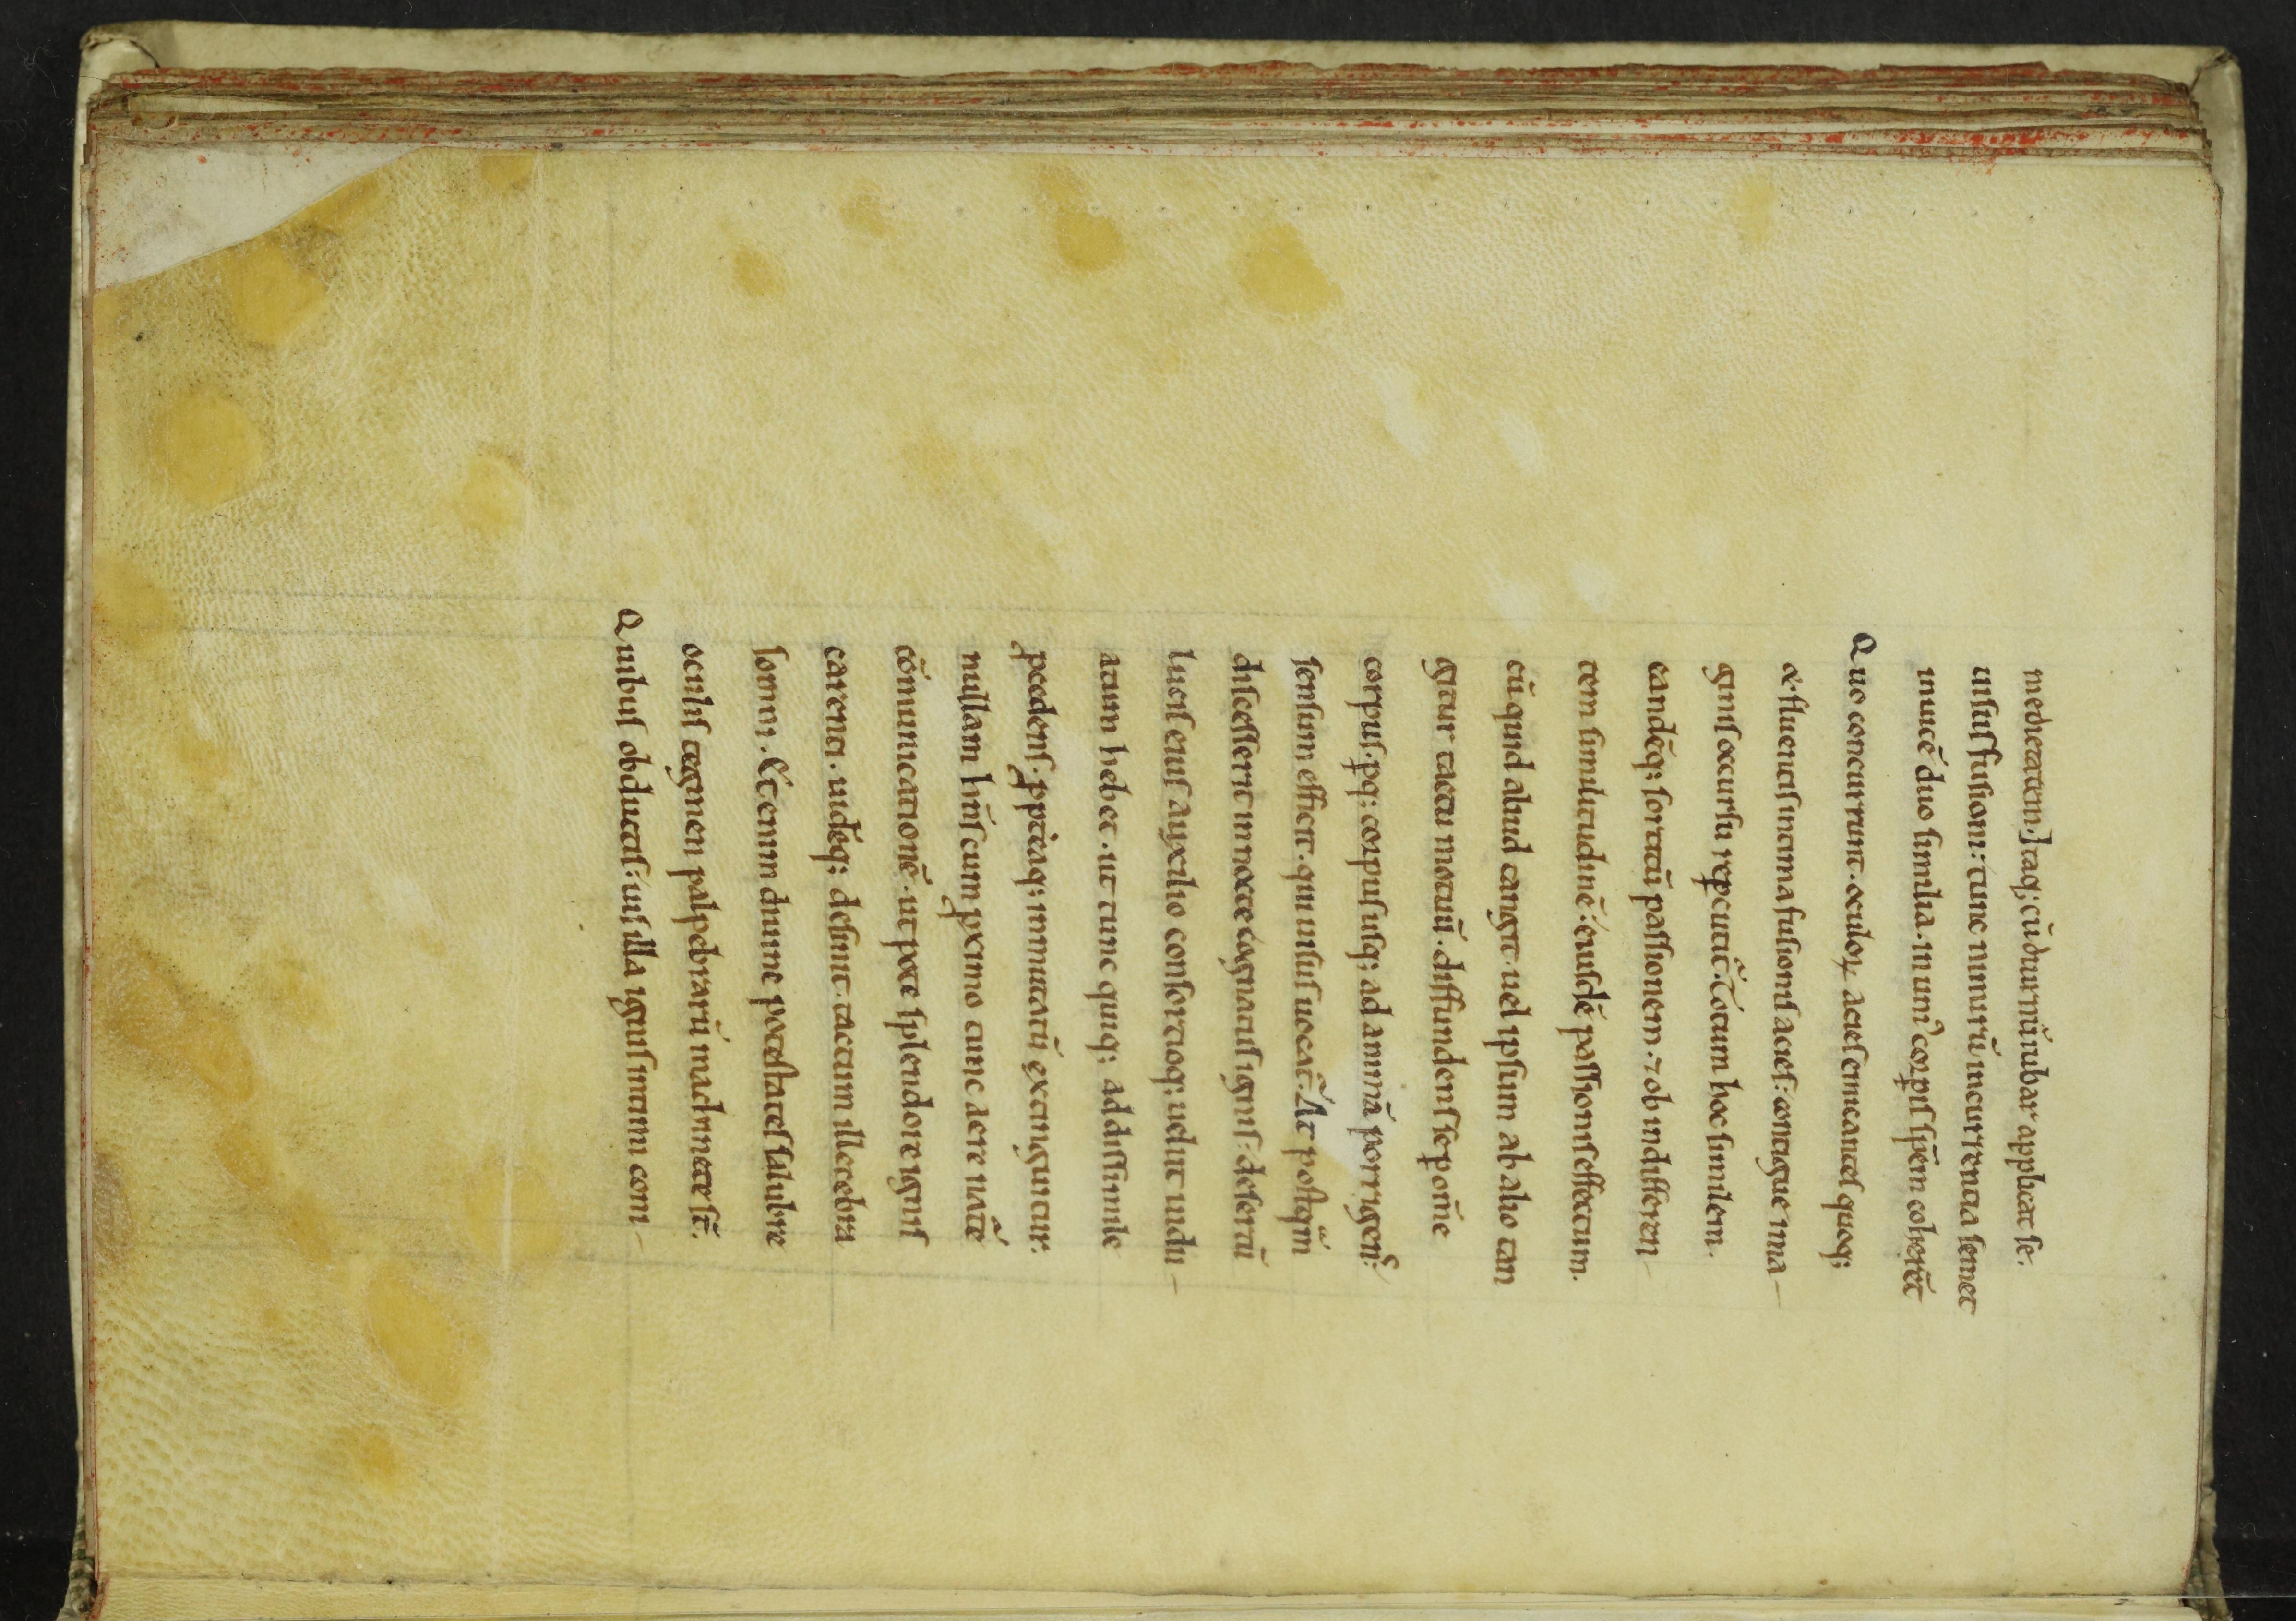 medietatem. Itaq; cū diurnū iubar applicat se.
uisus fusioni: tunc nimirū incurrentia semet
inuicē duo similia. in uni᷒ corꝑis spēm coherēt
Quo concurrunt. oculoꝝ acies emicantes quoq;
& fluentis intima fusionis acies: contigue ima-
ginis occursu reꝑcutit̄. Totum hoc similem.
eandēq; sortitū passionem. ⁊ ob indifferen-
tem similitudinē: eiusdē passionis effectum.
cū quid aliud tangit. uel ipsum ab alio tan
gitur tactu motuū. diffundens se ꝑ om̄e
corpus. ꝑq; corpus usq; ad animā porrigens:
sensum efficit. qui uisus uocat̄. At postq̄m
discesserit in nocte cognatus ignis: desertū
lucis eius auxilio consortioq; uelut uidu-
atum hebet. ut tunc quiq; ad dissimile
ꝓcedens. ꝓpteaq; inmutatū extinguitur.
nullam hn̄s cum ꝓximo tunc aere natē
cōmunicationē. ut pote splendore ignis
carenti. uidēq; desinit. tactum illecebra
somni. Et enim diuine potestates salubre
oculis tegmen palpebrarū machinate sr̄.
Quibus obductis: uis illa ignis intimi com-